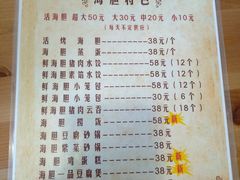 海胆特色
活海胆 超大50元 大30元 中20元 小10元
(每天不定供应)
活烤海胆 38元/个
海胆蒸蛋 38元/个
鲜海胆猪肉水饺 58元 (12个)
鲜海胆素馅水饺 58元 (12个)
鲜海胆小笼包 58元 (12个)
鲜海胆小笼包 30元 (6个)
鲜海胆猪肉云吞 38元 (18个)
海胆捞饭 58元
海胆豆腐砂锅 38元
海胆紫菜砂锅 38元
海胆鸡蛋糕 38元
海胆一品豆腐煲 38元